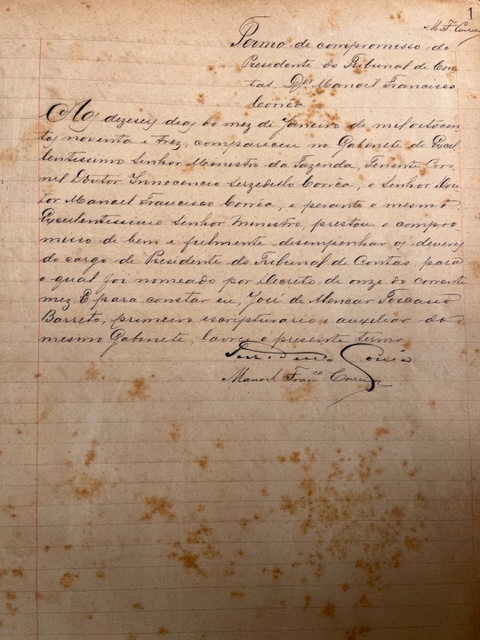 1
M. F. Corrêa
Termo de compromisso do
Presidente do Tribunal de Con
tas Dor Manoel Francisco
Corrêa
Aos dezeseis dias do mez de Janeiro de mil oitocen
tos noventa e trez, compareceu no Gabinete do Excel
lentissimo Senhor Ministro da Fazenda, Tenente Coro
nel Doutor Innocencio Serzedello Corrêa, o Senhor Dou
tor Manoel Francisco Corrêa, e perante o mesmo
Excellentissimo Senhor Ministro, prestou o compro
misso de bem e fielmente desempenhar os deveres
do cargo de Presidente do Tribunal de Contas para
o qual foi nomeado por Decreto de onze do corrente
mez E para constar eu, José de Alencar Toscano
Barreto, primeiro escripturario e auxiliar do
mesmo Gabinete, lavrei o presente termo
Serzedello Corrêa
Manoel Franco Corrêa